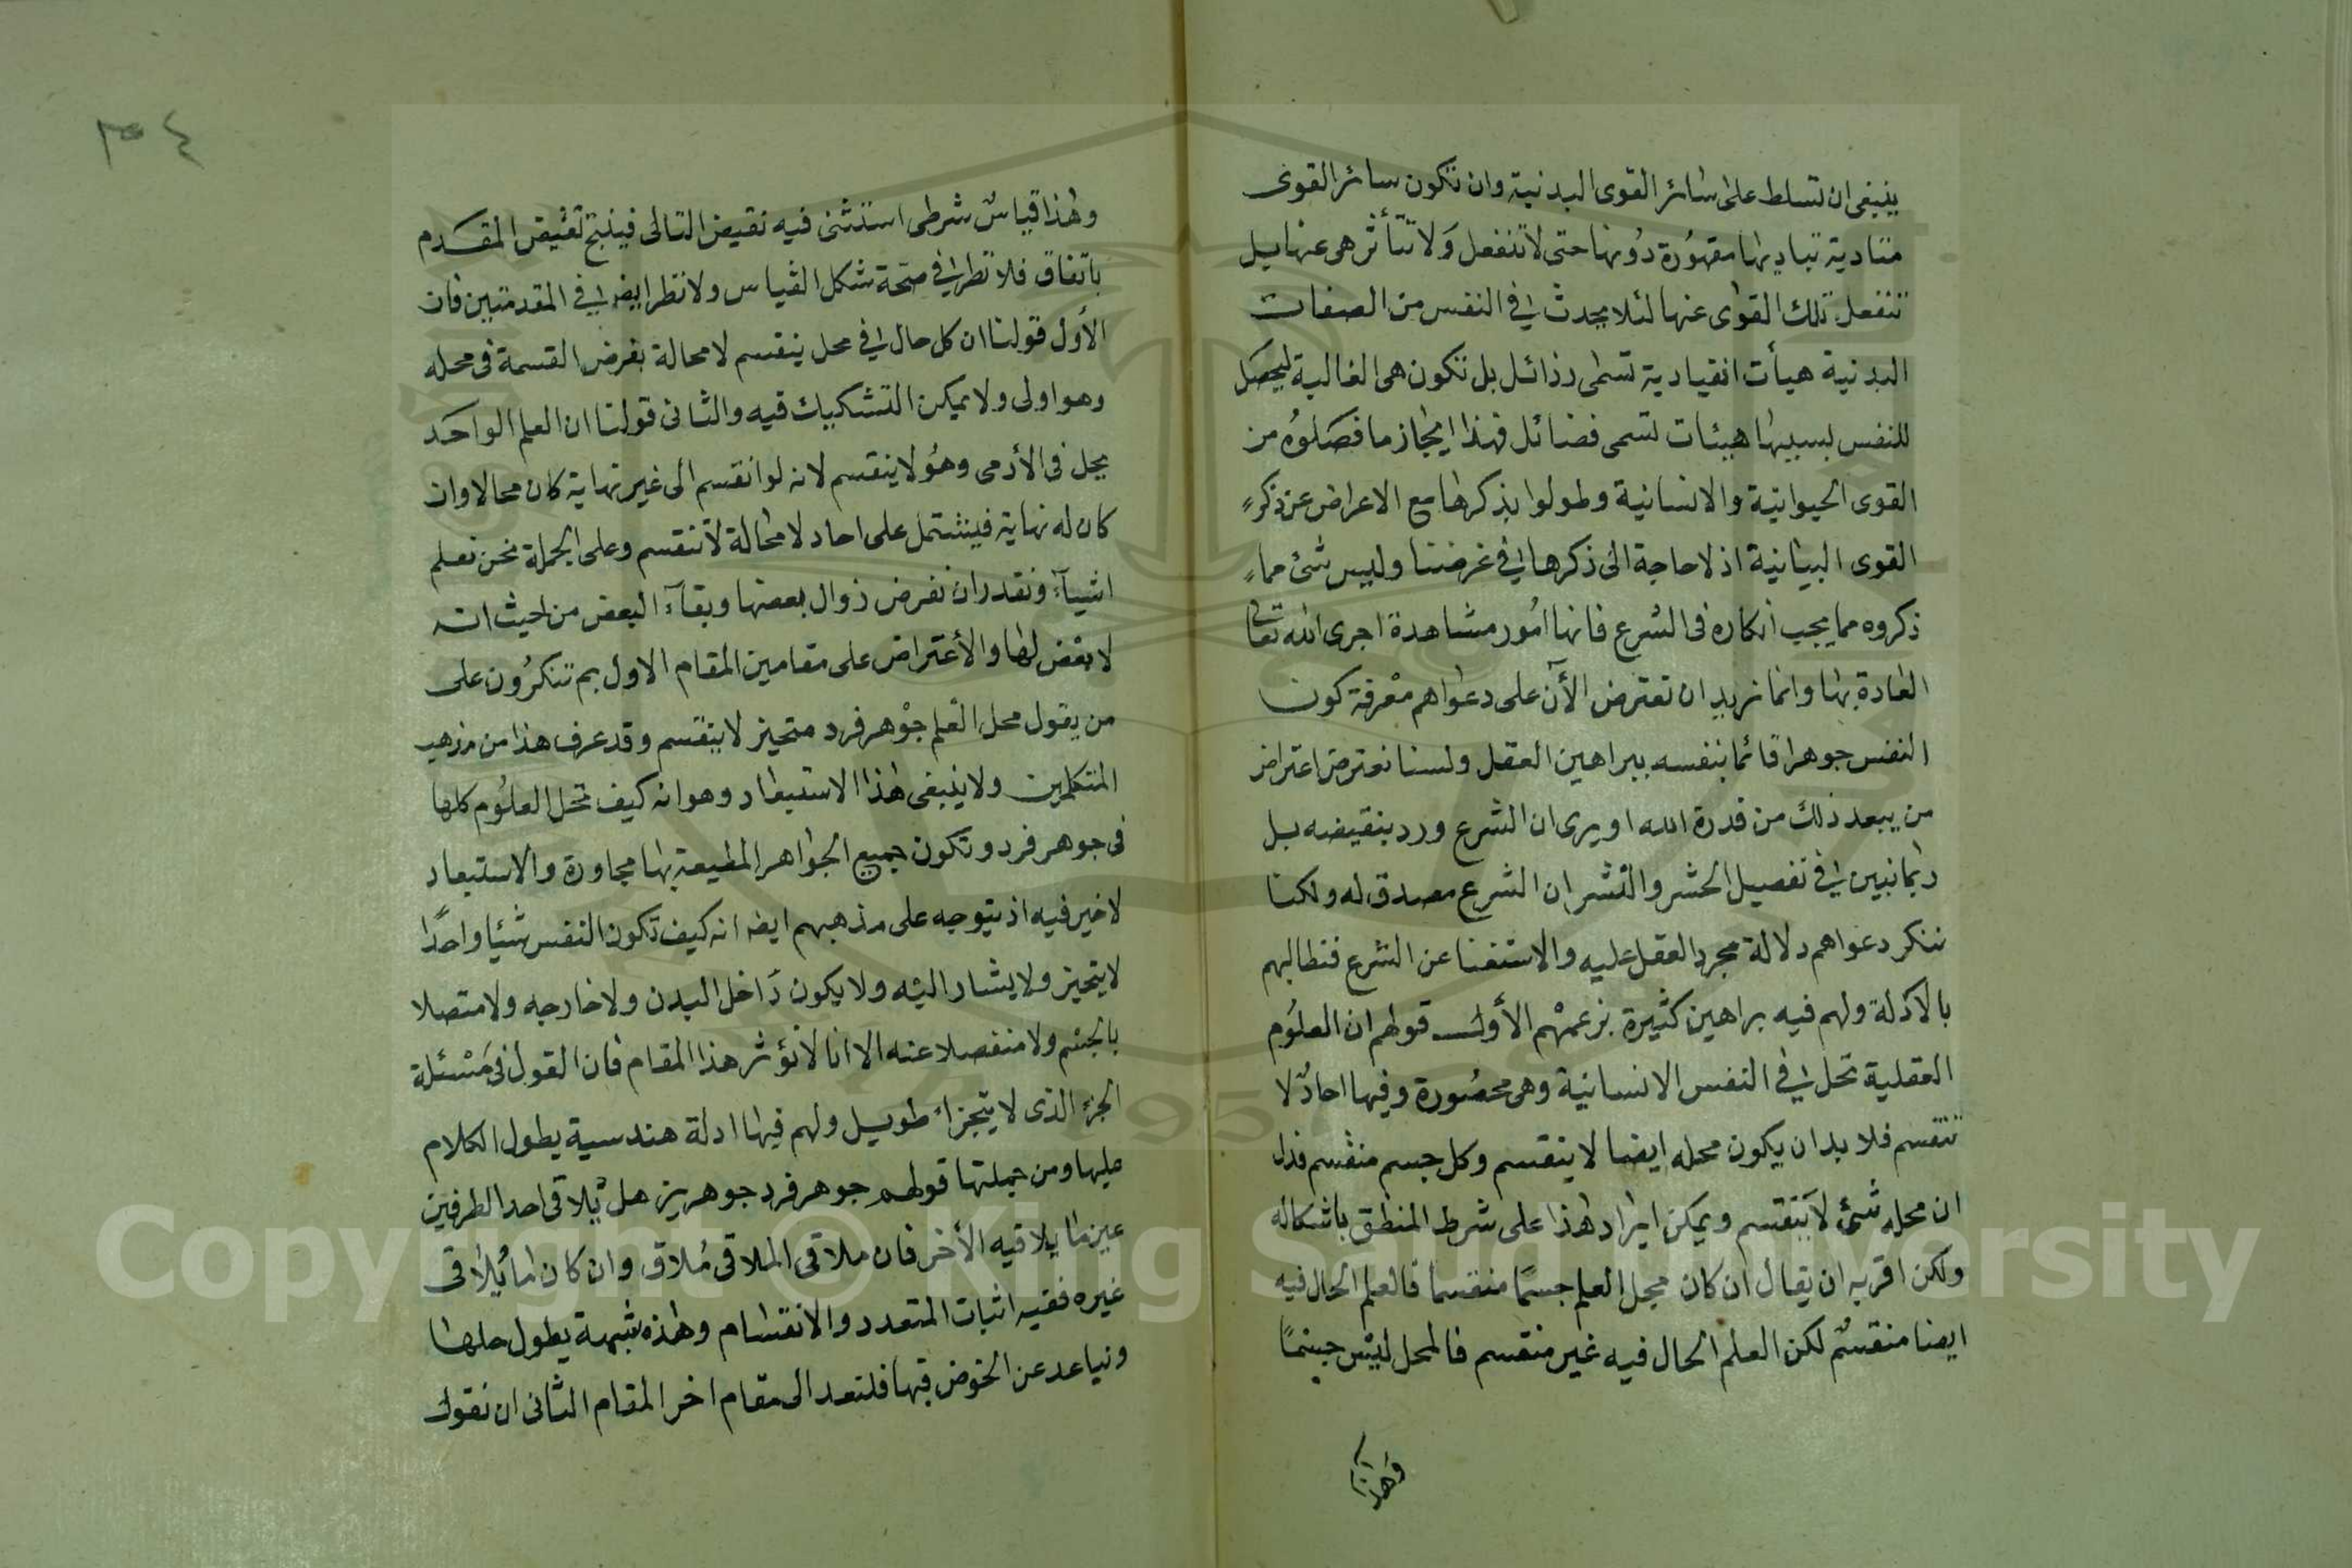 ينبغى ان تسلط على سائر القوى البدنية وان تكون سائر القوى
متادية بتاديبها مقهورة دونها حتى لا تنفعل ولا تتأثر هى عنها بل
تنفعل تلك القوى عنها لئلا يحدث فى النفس من الصفات
البدنية هيأت انقيادية تسمى رذائل بل تكون هى الغالبة ليحصل
للنفس بسببها هيئات تسمى فضائل فهذا ايجاز ما فصلوه من
القوى الحيوانية والانسانية وطولوا بذكرها مع الاعراض عن ذكر
القوى النباتية اذ لا حاجة الى ذكرها فى غرضنا وليس شئ مما
ذكروه مما يجب انكاره فى الشرع فانها امور مشاهدة اجرى الله تعالى
العادة بها وانما نريد ان نعترض الآن على دعواهم معرفة كون
النفس جوهرا قائما بنفسه ببراهين العقل ولسنا نعترض اعتراض
من يبعد ذلك من قدرة الله او يرى ان الشرع ورد بنقيضه بل
ربما نبين فى تفصيل الحشر والنشر ان الشرع مصدق له ولكنا
ننكر دعواهم دلالة مجرد العقل عليه والاستغنا عن الشرع فنطالبهم
بالادلة ولهم فيه براهين كثيرة بزعمهم الأول قولهم ان العلوم
العقلية تحل فى النفس الانسانية وهى محصورة وفيها احاد لا
تنقسم فلا بد ان يكون محله ايضا لا ينقسم وكل جسم منقسم فدل
ان محله شئ لا ينقسم ويمكن ايراد هذا على شرط المنطق باشكاله
ولكن اقربه ان يقال ان كان محل العلم جسمًا منقسما فالعلم الحال فيه
ايضا منقسم لكن العلم الحال فيه غير منقسم فالمحل ليس جسمًا
وهذا
٣٠٤
وهذا قياس شرطى استثنى فيه نقيض التالى فينتج نقيض المقدم
باتفاق فلا نظر فى صحة شكل القياس ولا نظر ايضا فى المقدمتين فان
الأول قولنا ان كل حال فى محل ينقسم لا محالة بفرض القسمة فى محله
وهو اولى ولا يمكن التشكيك فيه والثانى قولنا ان العلم الواحد
يحل فى الأدمى وهو لا ينقسم لانه لو انقسم الى غير نهاية كان محالا وان
كان له نهاية فيشتمل على احاد لا محالة لا تنقسم وعلى الجملة نحن نعلم
اشيآء ونقدر ان نفرض زوال بعضها وبقآء البعض من حيث انه
لا بعض لها والأعتراض على مقامين المقام الاول بم تنكرون على
من يقول محل العلم جوهر فرد متحيز لا ينقسم وقد عرف هذا من مذهب
المتكلمين ولا ينبغى هذا الاستبعاد وهو انه كيف تحل العلوم كلها
فى جوهر فرد وتكون جميع الجواهر المطيعة بها مجاورة والاستبعاد
لا خير فيه اذ يتوجه على مذهبهم ايضا انه كيف تكون النفس شيئا واحدًا
لا يتحيز ولا يشار اليه ولا يكون داخل البدن ولا خارجه ولا متصلا
بالجسم ولا منفصلا عنه الا انا لا نؤثر هذا المقام فان القول فى مسئلة
الجزء الذى لا يتجزاء طويل ولهم فيها ادلة هندسية يطول الكلام
عليها ومن جملتها قولهم جوهر فرد جوهرين هل يلاقى احد الطرفين
عين ما يلاقيه الأخر فان ملاقى الملاقى ملاق وان كان ما يلاقى
غيره ففيه اثبات المتعدد والانقسام وهذه شبهة يطول حلها
ونباعد عن الخوض فيها فلنعد الى مقام اخر المقام الثانى ان نقول
Copyright © King Saud University
1957